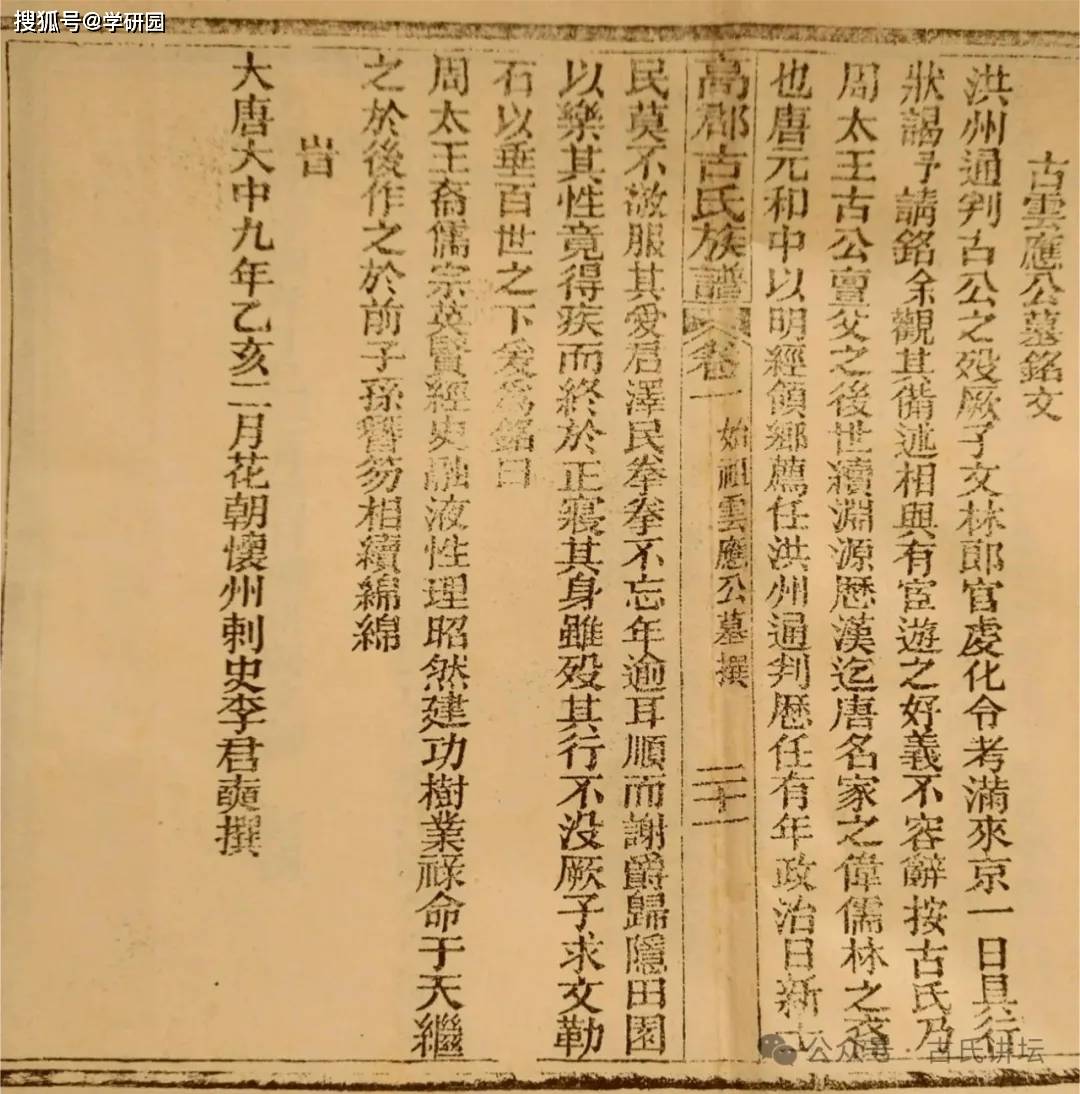 搜狐号@学研园
古雲應公墓銘文
洪州通判古公之殁厥子文林郎官虔化令考滿來京一日具行
狀謁予請銘余觀其備述相與有宦遊之好義不容辭按古氏乃
周太王古公亶父之後世續淵源歷漢迄唐名家之偉儒林之裔
也唐元和中以明經領鄉薦任洪州通判歷任有年政治日新士
高郡古氏族譜 卷一 始祖雲應公墓撰 二十一
民莫不敬服其愛君澤民拳拳不忘年逾耳順而謝爵歸隱田園
以樂其性竟得疾而終於正寢其身雖殁其行不没厥子求文勒
石以垂百世之下爰為銘曰
周太王裔儒宗英賢經史融液性理昭然建功樹業祿命于天繼
之於後作之於前子孫簪笏相續綿綿
旹
大唐大中九年乙亥二月花朝懷州刺史李君奭撰
公众号 古氏讲坛